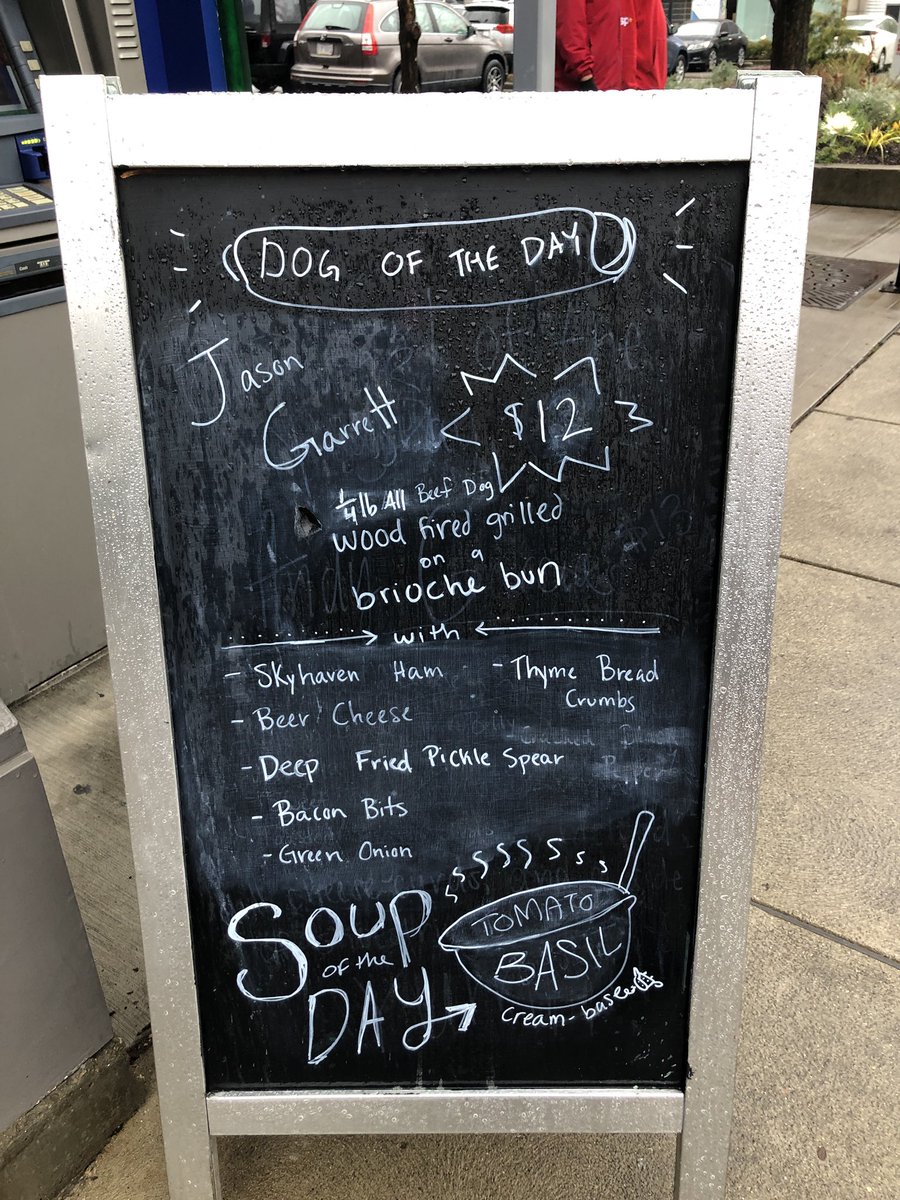 DOG OF THE DAY
Jason
Garrett
$12
1/4 lb All Beef Dog
Wood fired grilled
on a
brioche bun
with
- Skyhaven Ham
- Beer Cheese
- Deep Fried Pickle Spear
- Bacon Bits
- Green Onion
- Thyme Bread
Crumbs
Soup
OF the
DAY
TOMATO
BASIL
cream-based